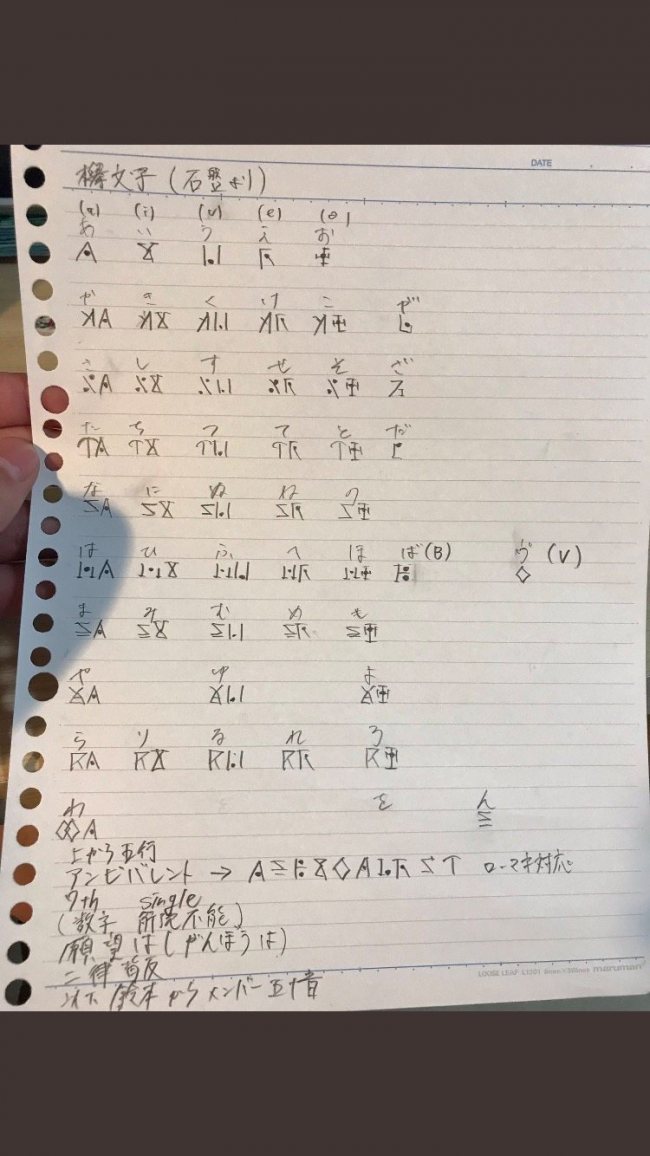 DATE
欅文字(石盤より)
(a) (i) (u) (e) (o)
あ い う え お
か き く け こ が
さ し す せ そ ざ
た ち つ て と だ
な に ぬ ね の
は ひ ふ へ ほ ば(B) ヴ (V)
ま み む め も
や ゆ よ
ら り る れ ろ
わ を ん
上から五行
アンビバレント → ローマ字対応
7th single
(数字 解読不能)
願望は(がんぼうは)
二律背反
以下 鈴木からメンバー五十音
LOOSE LEAF L1201 6mm×36lines maruman